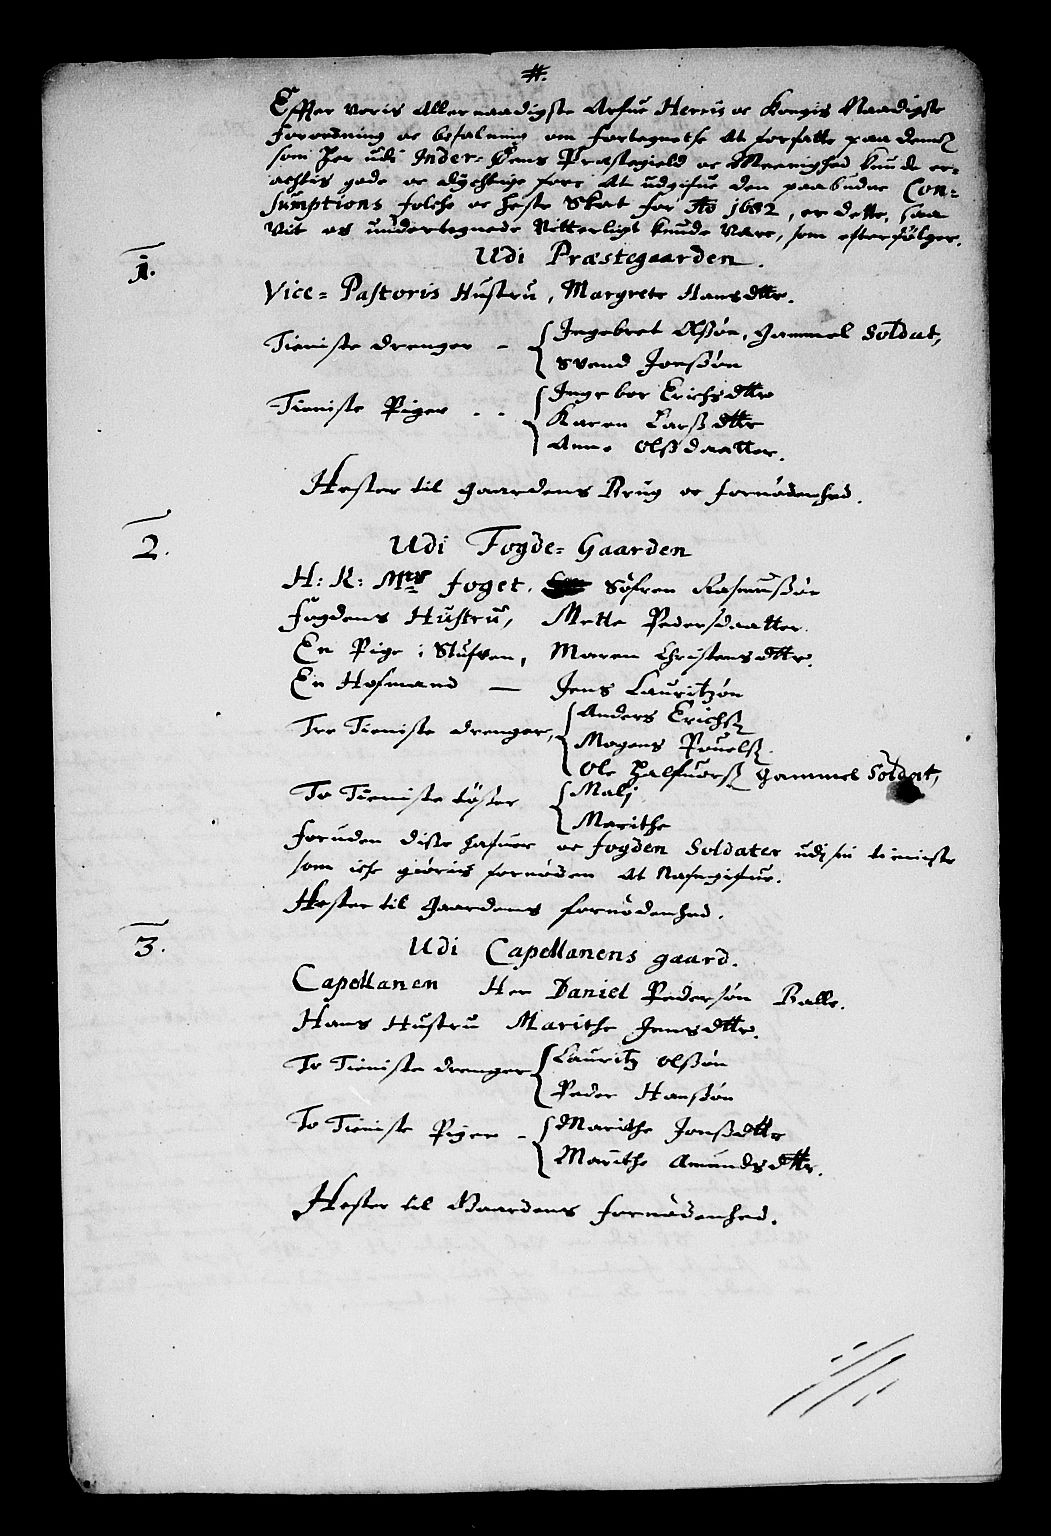 #.
Effter voris Allernaadigste Arfue Herris oc Kongis Naadigste
Forordning oc befalning om fortegnelse at forfatte paa dem
som her udi Inder-Øens Præstegield oc Meenighed kunde er-
achtis gode oc dychtige fore at udgifue den paabudne Con-
sumptions folche oc heste Skat for Ao 1682, er dette, saa
vit os undertegnede Vitterligt kunde være, som efterfølger.
1.
Udi Præstegaarden.
Vice-Pastoris Hustru, Margrete Hansdtter.
Tieniste drenger - Ingebret Olsøn, gammel Soldat,
Svend Jonssøn
Tieniste Piger - - Ingebor Erichsdtter
Karen Larsdtter
Anne Olssdaatter.
Hester til gaardens Brug oc fornødenhed.
2.
Udi Fogde-Gaarden
H: K: Mts foget, Søfren Rasmussøn
fogdens Hustru, Mette Pedersdaatter.
En Pige i Stufven, Maren Christensdtter.
En Hofmand — Jens Lauritzøn
Tre Tieniste drenger, Anders Erichss
Mogens Pouelss.
Ole Halfuorss gammel Soldat,
To Tieniste tøsser Malj
Marithe
foruden disse hafuer oc fogden Soldater udj sin tieniste
som iche giøris fornøden at Nafngifue.
Hester til gaardens fornødenhed.
3.
Udi Capellanens gaard.
Capellanen Her Daniel Pedersøn Balle.
Hans Hustru Marithe Jensdtter.
To Tieniste drenger Lauritz Olssøn
Peder Hanssøn
To Tieniste Piger - Marithe Jonssdtter
Marithe Amundsdtter.
Hester til Gaardens fornødenhed.